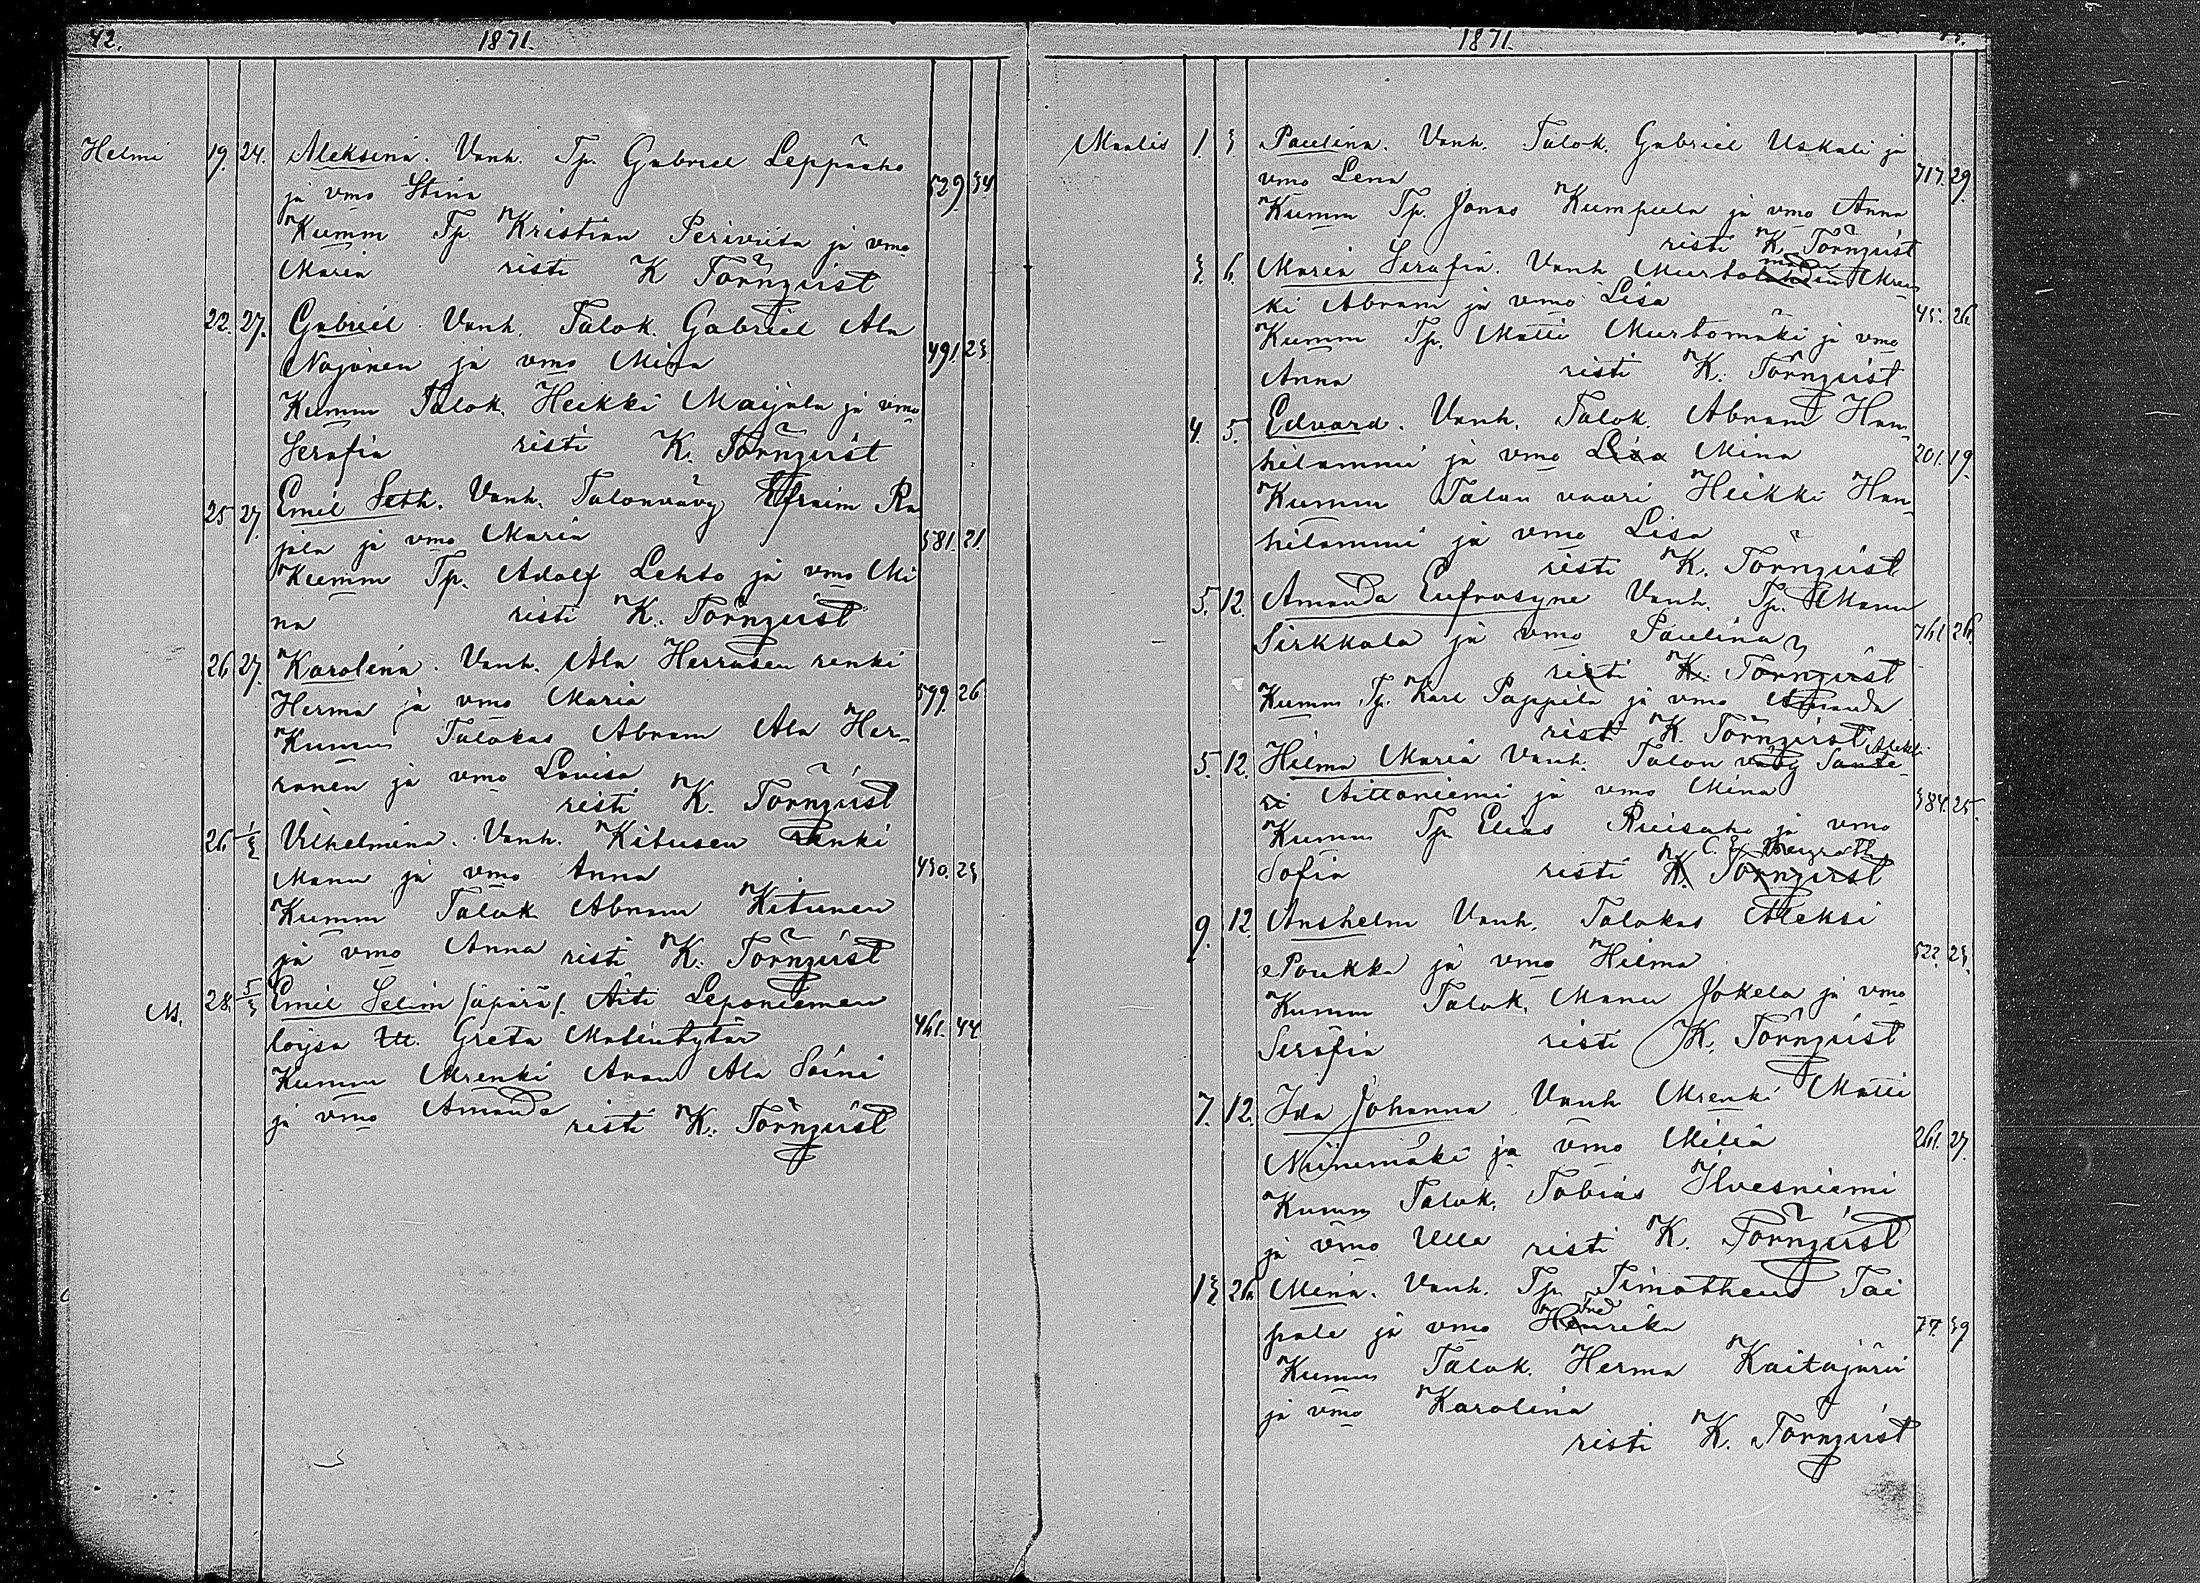 42. 1871.
Helmi 19. 24. Aleksena. Vanh. Tp. Gabriel Leppäaho
ja vmo Stina 529. 34
Kumm Tp. Kristian Periviita ja vmo
Maria risti K Törnqvist
22. 27. Gabriel. Vanh. Talok. Gabriel Ala
Nojonen ja vmo Mina 491. 23
Kumm Talok. Heikki Maijala ja vmo
Serafia risti K. Törnqvist
25 27. Emil Seth. Vanh. Talonvävy Efraim Ra
jala ja vmo Maria 581. 21.
Kumm Tp. Adolf Lehto ja vmo Mi
na risti K. Törnqvist
26 27. Karolina. Vanh. Ala Herrasen renki
Herma ja vmo Maria 599. 26
Kumm Talokas Abram Ala Her-
ranen ja vmo Lovisa
risti K. Törnqvist
26 1/3 Vilhelmina. Vanh. Kitusen renki
Manu ja vmo Anna 430. 23
Kumm Talok Abram Kitunen
ja vmo Anna risti K. Törnqvist
M. 28. 5/3 Emil Selim (äpärä). Äiti Leponiemen
loijsa Greta Matintytär 461. 44
Kumm Mrenki Aron Ala Soini
ja vmo Amanda risti K. Törnqvist
1871.
Maalis 1. 3. Paulina. Vanh. Talok. Gabriel Uskali ja
vmo Lena 717. 29.
Kumm Tp. Jonas Kumpula ja vmo Anna
risti K. Törnqvist
3. 6. Maria Serafia. Vanh Murto Mren
ki Abram ja vmo Lisa 45. 26
Kumm Tp. Matti Murtomäki ja vmo
Anna risti K. Törnqvist
4. 5. Edvard. Vanh. Talok. Abram Han-
hilammi ja vmo Lisa Mina 201. 19.
Kumm Talon vaari Heikki Han-
hilammi ja vmo Lisa
risti K. Törnqvist
5. 12. Amanda Eufrosyne Vanh. Tp. Manu
Sirkkala ja vmo Paulina 761 26.
risti K. Törnqvist
Kumm Tp. Karl Pappila ja vmo Amanda
risti K. Törnqvist
5. 12. Hilma Maria Vanh. Talon vävy Sante-
ri Aittoniemi ja vmo Mina 384. 25.
Kumm Tp Elias Ruisaho ja vmo
Sofia risti K. Törnqvist
9. 12. Anshelm Vanh. Talokas Aleksi
Poukka ja vmo Hilma 522. 23.
Kumm Talok. Manu Jokela ja vmo
Serafia risti K. Törnqvist
7. 12. Ida Johanna Vanh Mrenki Matti
Niinimäki ja vmo Milia 261. 27.
Kumm Talok. Tobias Ilvesniemi
ja vmo Ulla risti K. Törnqvist
13 26. Mina. Vanh. Tp. Timotheus Tai
pale ja vmo Henrika 77. 39
Kumm Talok. Herma Kaitajärvi
ja vmo Karolina
risti K. Törnqvist